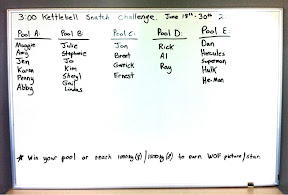 3:00 Kettlebell Snatch Challenge, June 18th-30th
Pool A: Pool B: Pool C: Pool D: Pool E:
Maggie Julie Jon Rick Dan
Amy Stephanie Brent Al Hercules
Jen Jo Garrick Ray Superman
Karen Kim Ernest Hulk
Penny Sheryl He-Man
Abby Gail
Lindas
* Win your pool or reach to earn WOF picture/star.